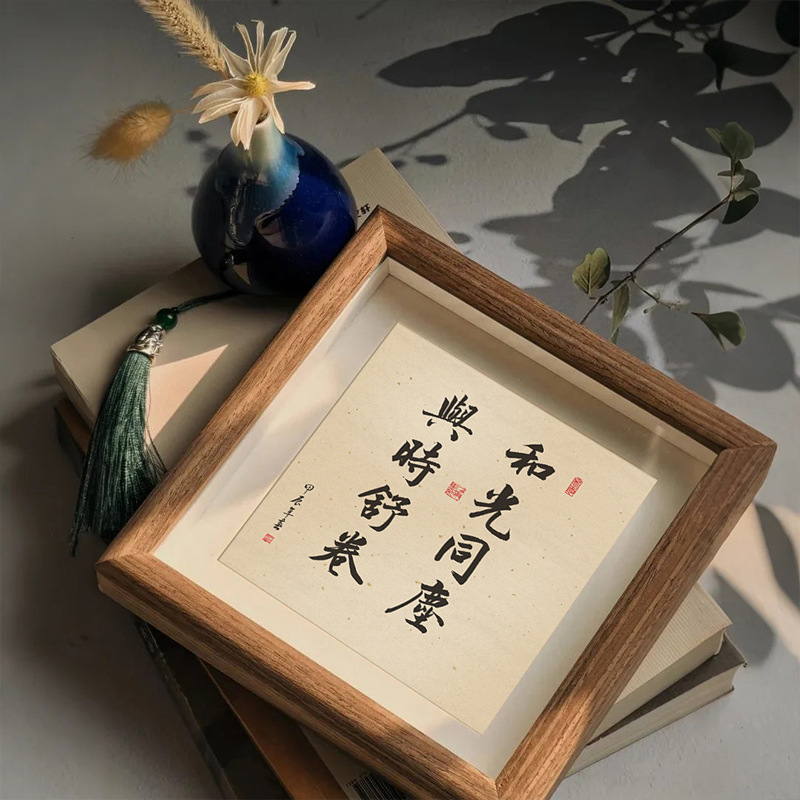 和光同塵
與時舒卷
甲辰年書